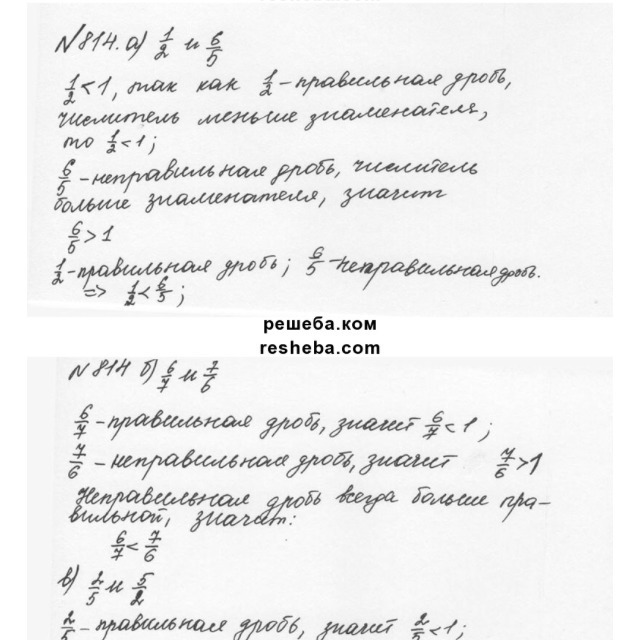 №814. а) 1/2 и 6/5
1/2 < 1, так как 1/2 – правильная дробь,
числитель меньше знаменателя,
то 1/2 < 1;
6/5 – неправильная дробь, числитель
больше знаменателя, значит
6/5 > 1
1/2 – правильная дробь; 6/5 – неправильная дробь.
=> 1/2 < 6/5;
решеба.ком
resheba.com
№814 б) 6/7 и 7/6
6/7 – правильная дробь, значит 6/7 < 1;
7/6 – неправильная дробь, значит 7/6 > 1
Неправильная дробь всегда больше пра-
вильной, значит:
6/7 < 7/6
в) 2/5 и 5/2
2/5 – правильная дробь, значит 2/5 < 1;